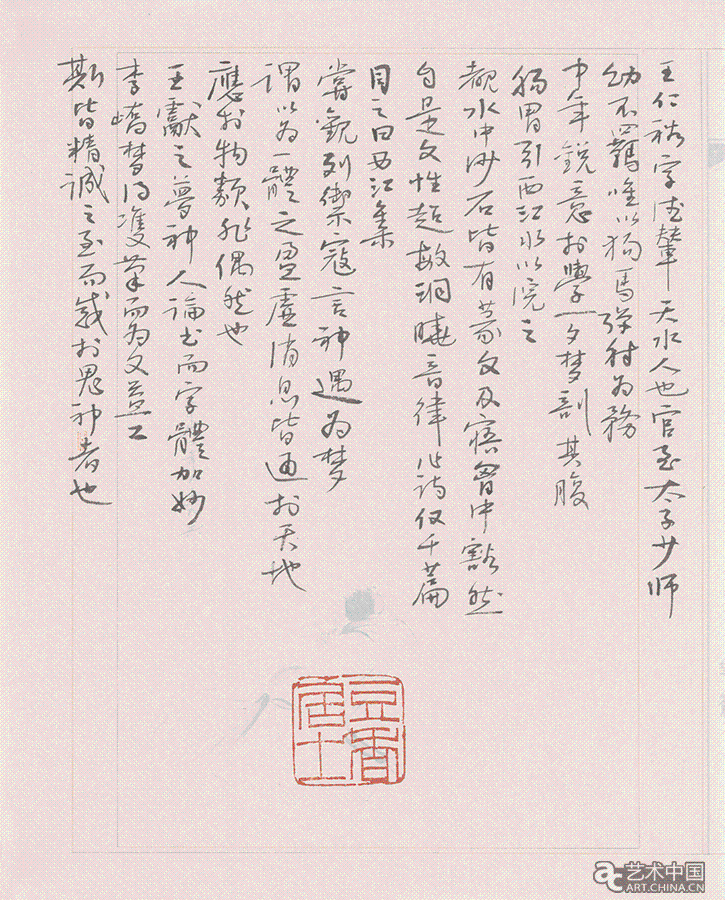 王仁裕字德輦天水人也官至太子少师
幼不羈唯以狗馬彈射为務
中年銳意於學一夕梦剖其腹
肠胃引西江水以浣之
覩水中沙石皆有篆文及寤胷中豁然
自是文性超敏洞曉音律作诗仅千篇
目之曰西江集
嘗観列禦寇言神遇为梦
謂以为一體之盈虛消息皆通於天地
應於物類非偶然也
王獻之夢神人論书而字體加妙
李嶠梦得雙筆而為文益工
斯皆精誠之至而感於鬼神者也
居士
ac 艺术中国
ART.CHINA.CN